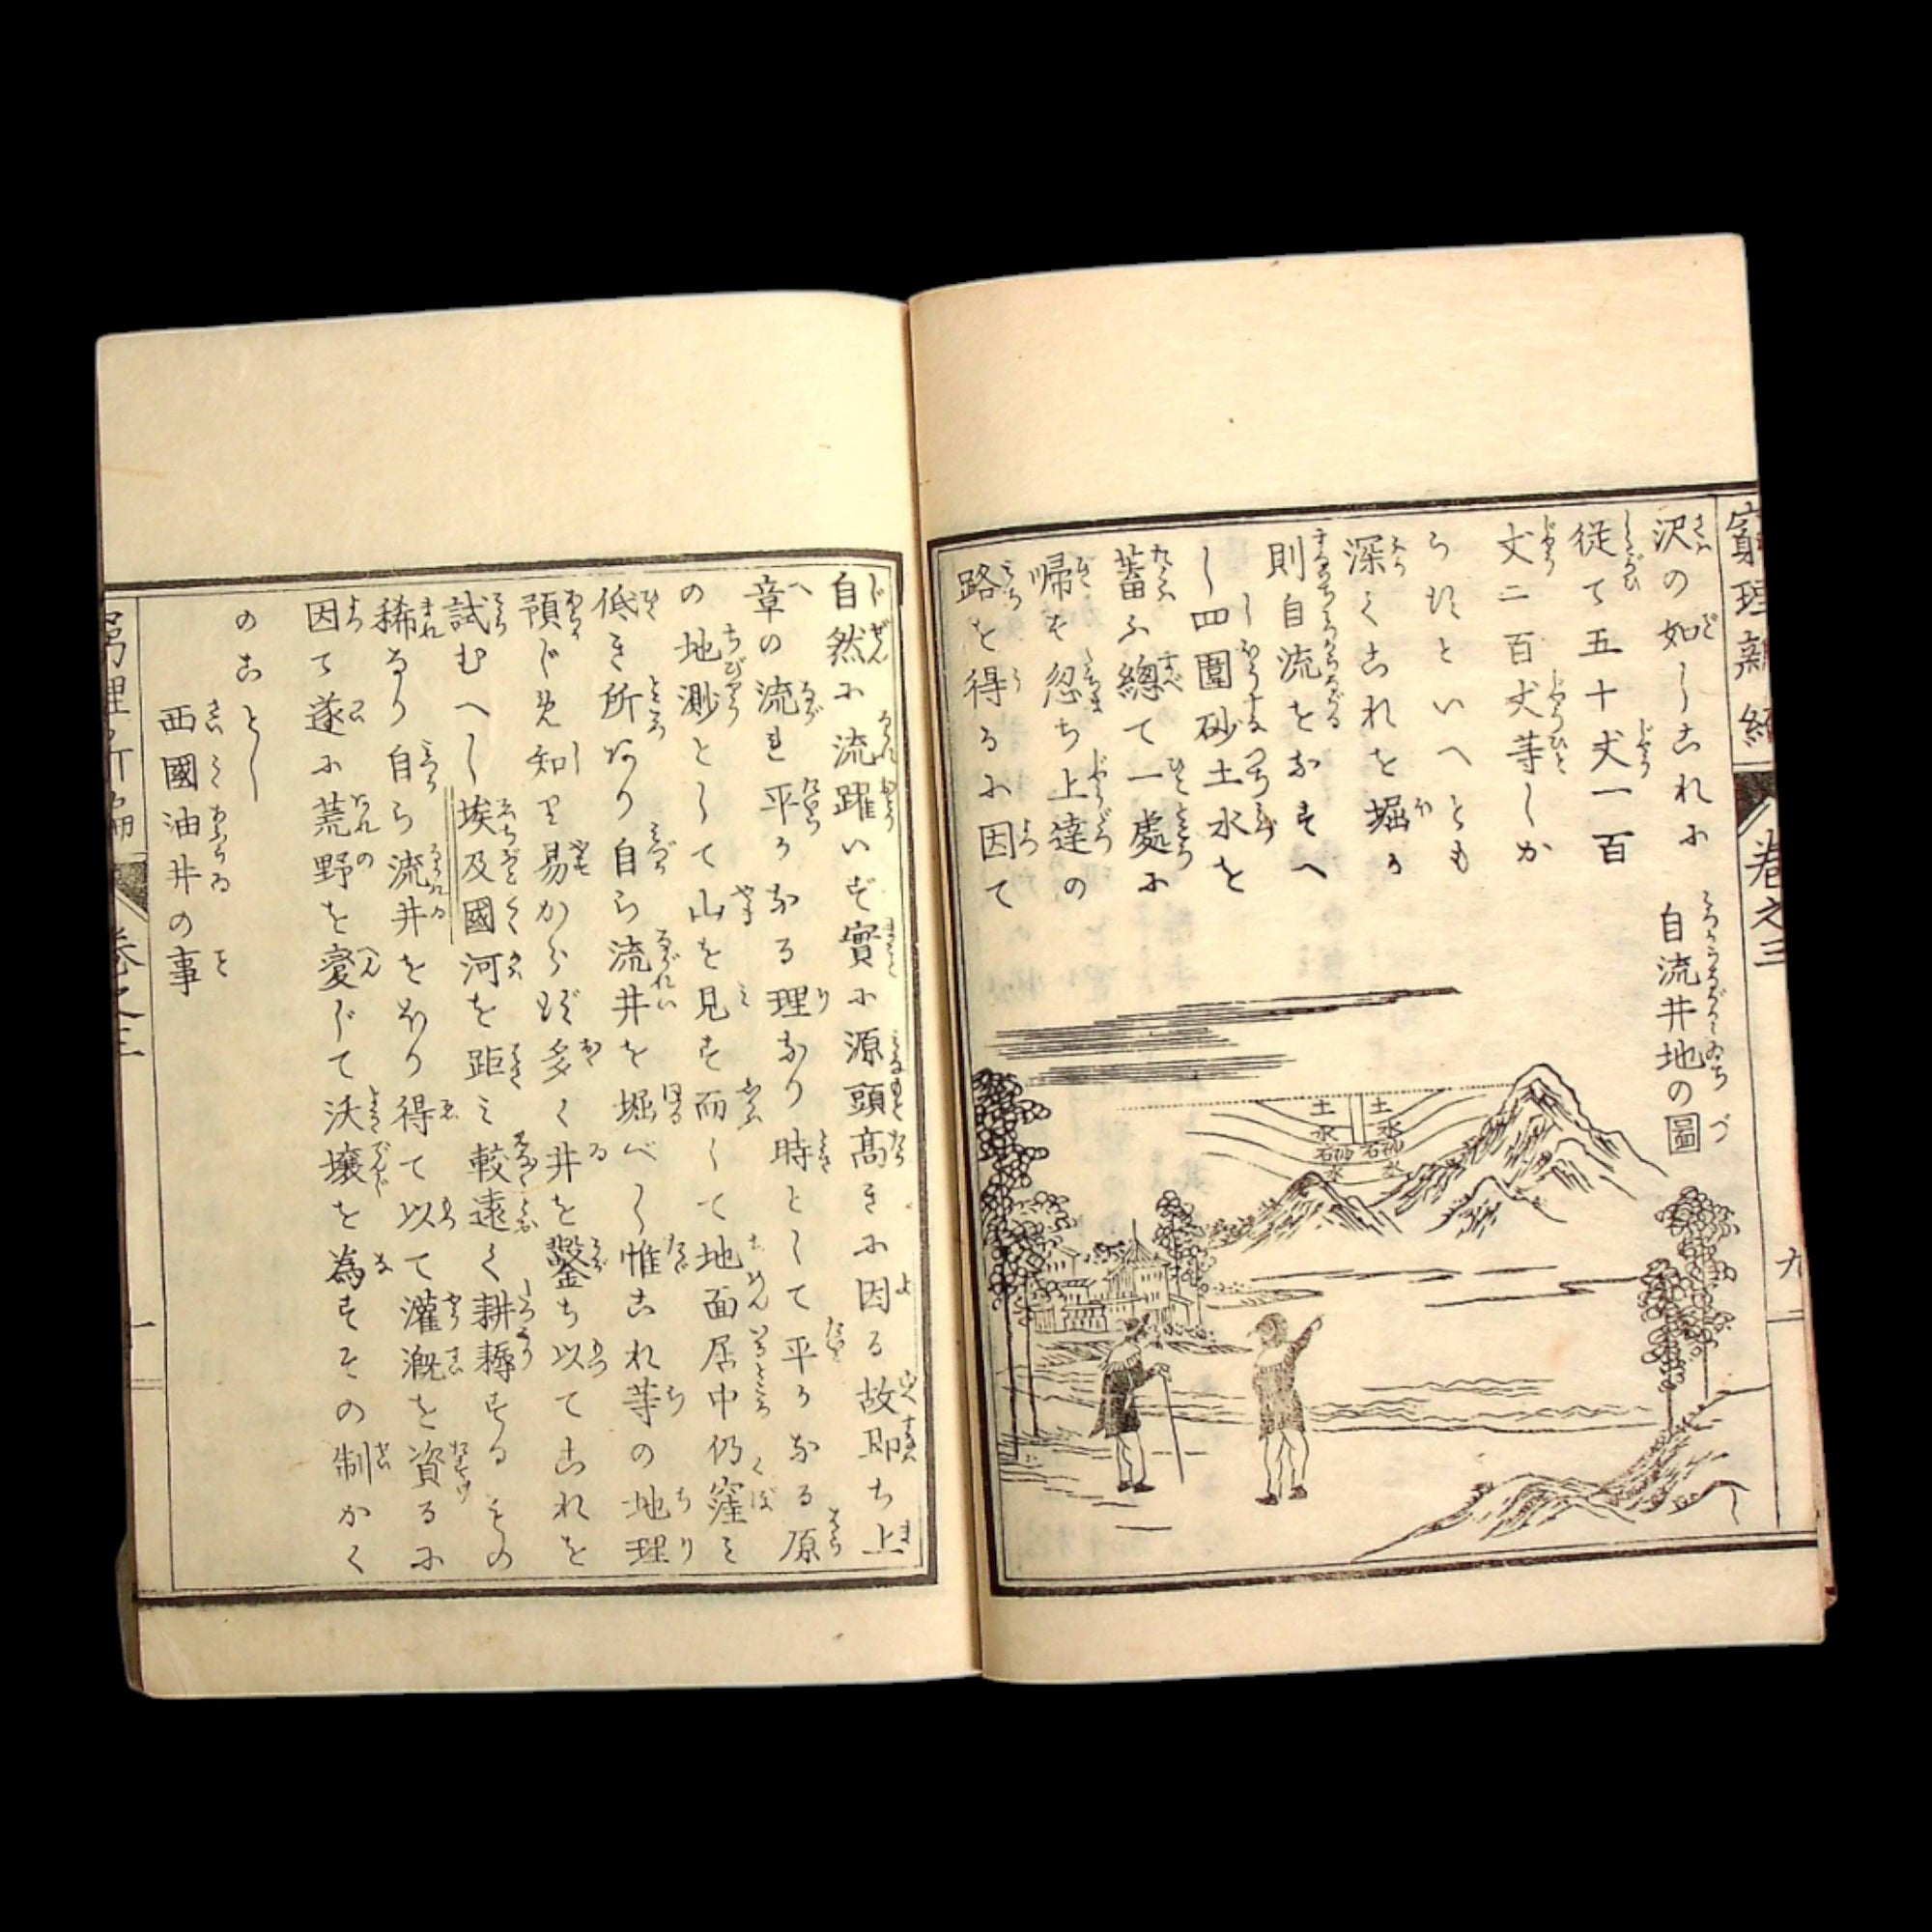 窮理新編
巻之三
九
沢の如しこれに
従て五十丈一百
丈二百丈等しか
らずといへども
深くこれを堀る
則自流をなすへ
し四圍砂土水を
蓄ふ總て一處に
帰せ忽ち上達の
路を得るに因て
自流井地の圖
土 土
水 水
砂石 砂石
水 水
自然に流躍いで實に源頭高きに因る故即ち上
章の流れ平らなる理なり時として平らなる原
の地渺として山を見ず而して地面居中仍窪み
低き所あり自ら流井を堀べし惟これ等の地理
預じめ知り易からず多く井を鑿ち以てこれを
試むへし埃及國河を距ミ較遠く耕耨するその
稀なり自ら流井をあり得て以て灌漑を資るに
因て遂に荒野を変じて沃壌を為すその制かく
のことし
西國油井の事
巻之三